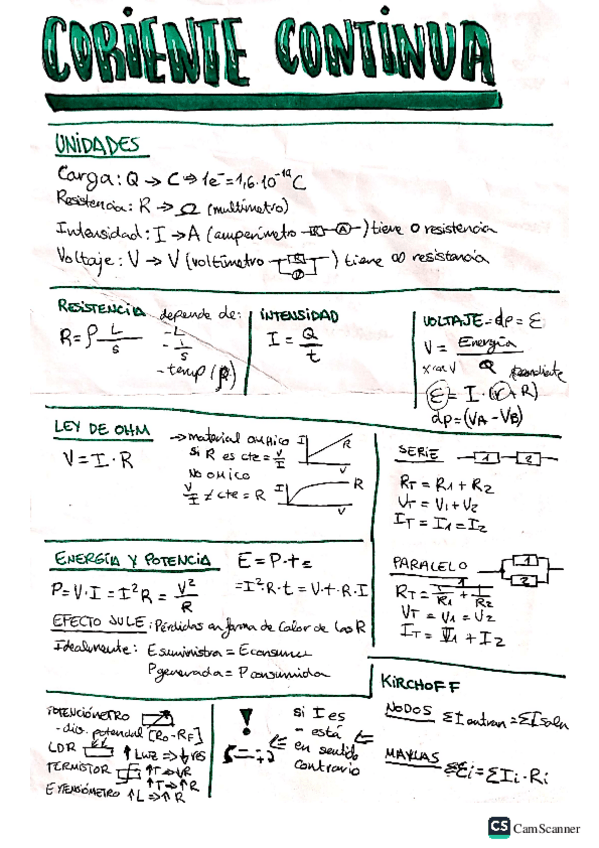 CORIENTE CONTINUA
UNIDADES
Carga: Q → C ⇒ 1e⁻ = 1,6·10⁻¹⁹ C
Resistencia: R → Ω (multímetro)
Intensidad: I → A (amperímetro -R-A-) tiene 0 resistencia
Voltaje: V → V (voltímetro) tiene ∞ resistencia
RESISTENCIA depende de:
R = ρ L/s
- L
- 1/s
- temp (ρ)
INTENSIDAD
I = Q/t
VOLTAJE = dp = ε
V = Energía/Q
ε = I·(r+R)
dp = (VA - VB)
LEY DE OHM
V = I·R
→ material ohmico
si R es cte = V/I
I R
V
NO OHICO
V/I ≠ cte = R
I R
V
SERIE 1 2
RT = R1 + R2
VT = V1 + V2
IT = I1 = I2
ENERGÍA Y POTENCIA E = P·t =
P = V·I = I²R = V²/R
= I²·R·t = V·t·R·I
EFECTO JULE: Pérdidas en forma de calor de las R
Idealmente: E suministra = E consumu
P generada = P consumida
PARALELO 1 2
RT = 1/(1/R1 + 1/R2)
VT = V1 = V2
IT = I1 + I2
KIRCHOFF
NODOS ΣI entran = ΣI salen
MAYLAS Σεi = ΣIi·Ri
POTENCIÓMETRO
- div. potencial [R0-RF]
LDR ↑ LUZ ⇒ ↓ RES
TERMISTOR ↑T ⇒ ↓R
↑T ⇒ ↑R
EXTENSIÓMETRO ↑L ⇒ ↑R
!
si I es
- está
en sentido
contrario
CS CamScanner